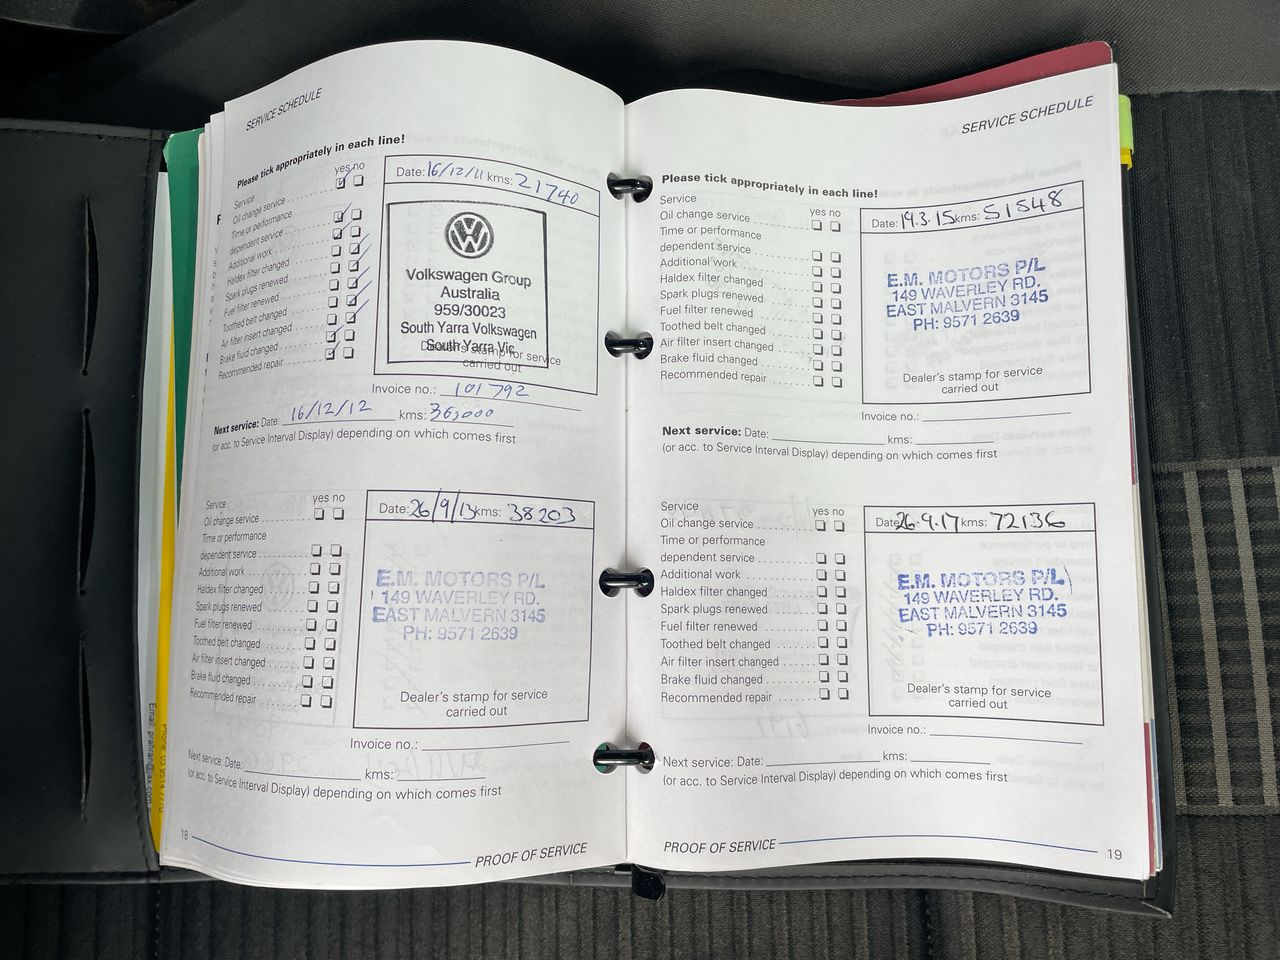 SERVICE SCHEDULE
Please tick appropriately in each line!
yes no
Service
Oil change service
Time or performance
dependent service
Additional work
Haldex filter changed
Spark plugs renewed
Fuel filter renewed
Toothed belt changed
Air filter insert changed
Brake fluid changed
Recommended repair
Date: 16/12/11 kms: 21740
Volkswagen Group
Australia
959/30023
South Yarra Volkswagen
South Yarra Vic
Dealer's stamp for service
carried out
Invoice no.: 101792
Next service: Date: 16/12/12 kms: 36,000
(or acc. to Service Interval Display) depending on which comes first
Service
yes no
Oil change service
Time or performance
dependent service
Additional work
Haldex filter changed
Spark plugs renewed
Fuel filter renewed
Toothed belt changed
Air filter insert changed
Brake fluid changed
Recommended repair
Date: 26/9/13 kms: 38203
E.M. MOTORS P/L
149 WAVERLEY RD.
EAST MALVERN 3145
PH: 9571 2639
Dealer's stamp for service
carried out
Invoice no.:
Next service: Date: kms:
(or acc. to Service Interval Display) depending on which comes first
18
PROOF OF SERVICE
SERVICE SCHEDULE
Please tick appropriately in each line!
Service
yes no
Oil change service
Time or performance
dependent service
Additional work
Haldex filter changed
Spark plugs renewed
Fuel filter renewed
Toothed belt changed
Air filter insert changed
Brake fluid changed
Recommended repair
Date: 19.3.15 kms: 51548
E.M. MOTORS P/L
149 WAVERLEY RD.
EAST MALVERN 3145
PH: 9571 2639
Dealer's stamp for service
carried out
Invoice no.:
Next service: Date: kms:
(or acc. to Service Interval Display) depending on which comes first
Service
yes no
Oil change service
Time or performance
dependent service
Additional work
Haldex filter changed
Spark plugs renewed
Fuel filter renewed
Toothed belt changed
Air filter insert changed
Brake fluid changed
Recommended repair
Date: 26.9.17 kms: 72136
E.M. MOTORS P/L
149 WAVERLEY RD.
EAST MALVERN 3145
PH: 9571 2639
Dealer's stamp for service
carried out
Invoice no.:
Next service: Date: kms:
(or acc. to Service Interval Display) depending on which comes first
PROOF OF SERVICE
19